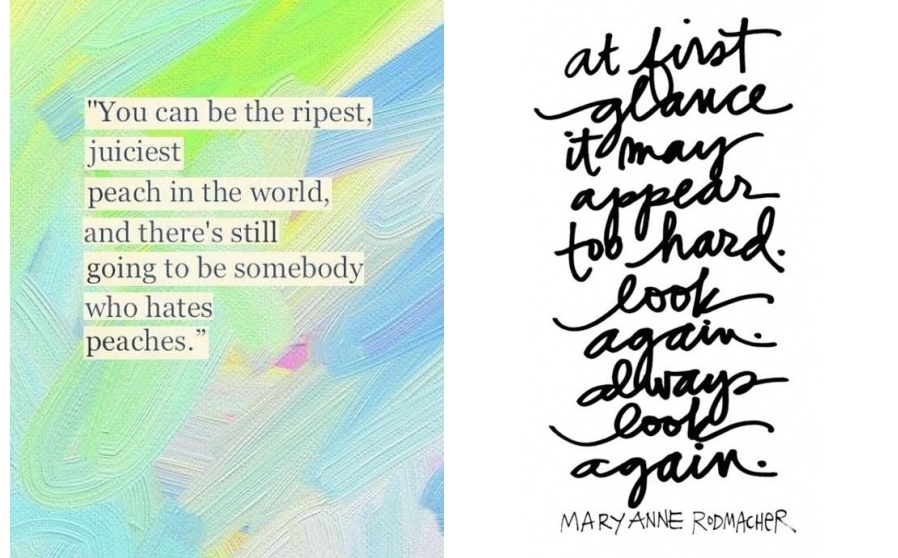 "You can be the ripest,
juiciest
peach in the world,
and there's still
going to be somebody
who hates
peaches.”
at first
glance
it may
appear
too hard.
look
again.
always
look
again.
MARY ANNE RODMACHER